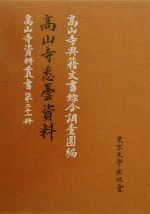 高山寺典籍文書綜合調査團編
高山寺悉曇資料
高山寺資料叢書 第二十一冊
東京大學出版會